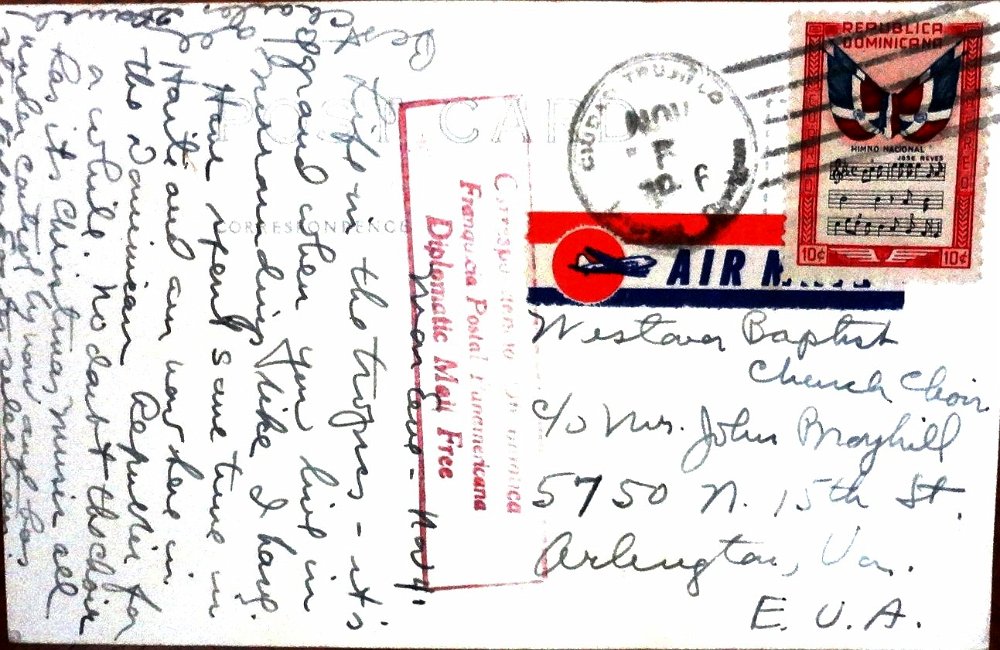 POST CARD
CORRESPONDENCE
REPUBLICA
DOMINICANA
HIMNO NACIONAL
JOSE REYES
10¢ 10¢
CIUDAD TRUJILLO
NOV
AIR MAIL
Franquicia Postal Panamericana
Diplomatic Mail Free
Nov 4.
Life in the tropics - it's
grand when you live in
surroundings like I have.
Have spent some time in
Haiti and am now here in
the Dominican Republic for
a while. No doubt the choir
has its Christmas music all
under control by now and has
Best
Westover Baptist
Church Choir
c/o Mrs. John Broyhill
5750 N. 15th St.
Arlington, Va.
E. U. A.